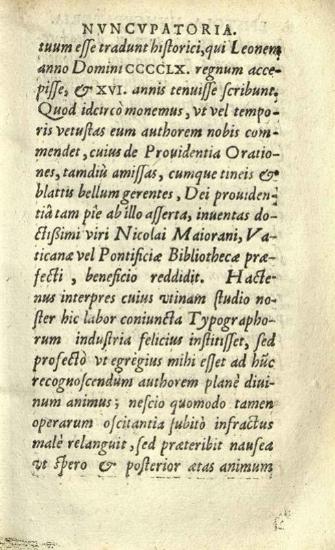 NVNCVPATORIA.
tuum esse tradunt historici, qui Leonem
anno Domini CCCCLX. regnum acce-
pisse, & XVI. annis tenuisse scribunt.
Quod idcircò monemus, vt vel tempo-
ris vetustas eum authorem nobis com-
mendet, cuius de Prouidentia Oratio-
nes, tamdiù amissas, cumque tineis &
blattis bellum gerentes, Dei prouiden-
tiâ tam pie ab illo asserta, inuentas do-
ctißimi viri Nicolai Maiorani, Va-
ticanæ vel Pontificiæ Bibliothecæ præ-
fecti, beneficio reddidit. Hacte-
nus interpres cuius vtinam studio no-
ster hic labor coniuncta Typographo-
rum industria felicius institisset, sed
profectò vt egregius mihi esset ad hũc
recognoscendum authorem planè diui-
num animus; nescio quomodo tamen
operarum oscitantia subitò infractus
malè relanguit, sed præteribit nausea
vt spero & posterior ætas animum